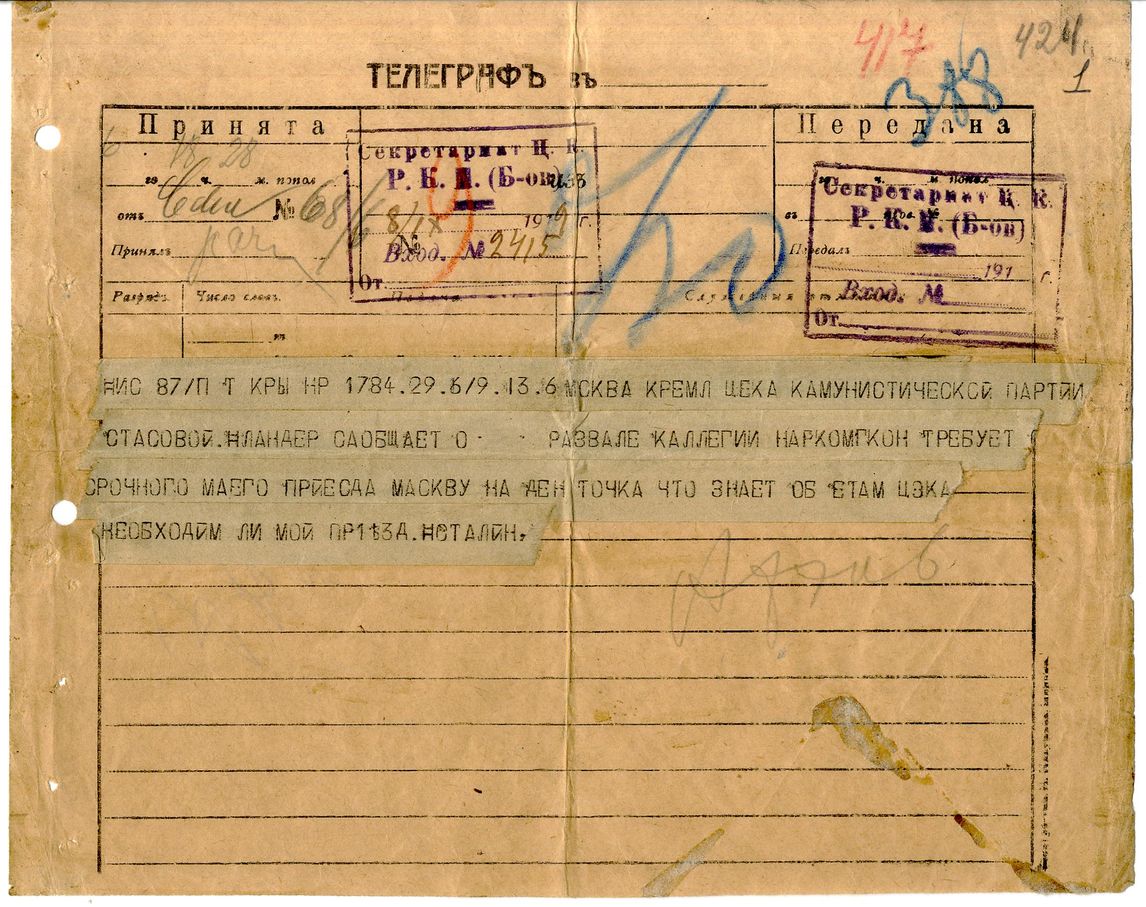 417
424
1
388
ТЕЛЕГРАФЪ въ
Принята
Передана
6 18 28
го ч. м. попол
Секретариат Ц. К.
Р. К. П. (Б-ов)
8/IX 1919 г.
Вход. № 2415
От
Секретариат Ц. К.
Р. К. П. (Б-ов)
191 г.
Вход. №
От
отъ № 68/6
въ
Принялъ
Передалъ
Разрядъ. Число словъ. Подача Служебныя
НИС 87/П Т КРЫ НР 1784.29.6/9.13.6 МСКВА КРЕМЛ ЦЕКА КАМУНИСТИЧЕСКОЙ ПАРТИИ
СТАСОВОЙ.НЛАНДЕР САОБЩАЕТ О РАЗВАЛЕ КАЛЛЕГИИ НАРКОМГКОН ТРЕБУЕТ
СРОЧНОГО МАЕГО ПРИЕСДА МАСКВУ НА ДЕН ТОЧКА ЧТО ЗНАЕТ ОБ ЕТАМ ЦЭКА
НЕОБХОДИМ ЛИ МОЙ ПР1ЕЗД.НСТАЛИН,
Архив